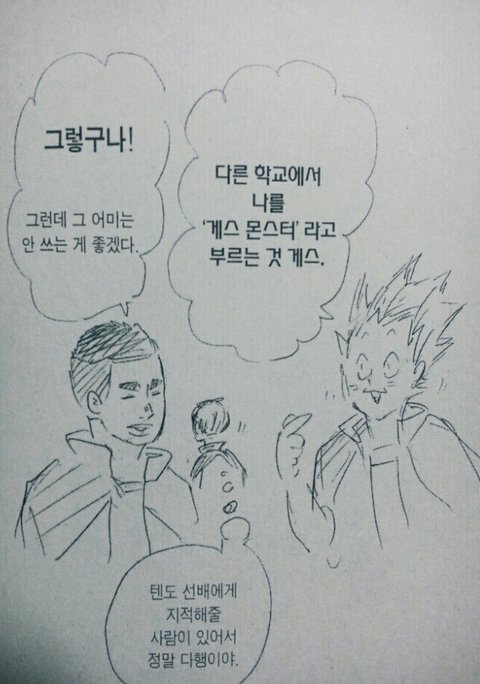 다른 학교에서
나를
‘게스 몬스터’ 라고
부르는 것 게스.
그렇구나!
그런데 그 어미는
안 쓰는 게 좋겠다.
텐도 선배에게
지적해줄
사람이 있어서
정말 다행이야.